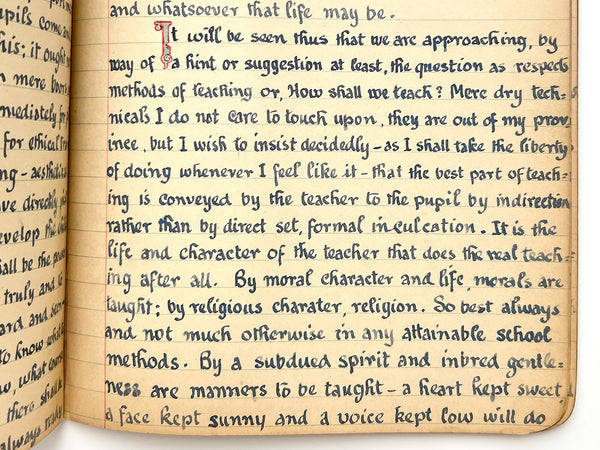 upils come
his; it ought
n mere
mediately
for ethical
ng - aesthetic
ve directly
evelop the
all be the
truly and
ard and
to know
w, what
there shall
always
and whatsoever that life may be.
It will be seen thus that we are approaching, by
way of a hint or suggestion at least, the question as respects
methods of teaching or, How shall we teach? Mere dry tech-
nicals I do not care to touch upon, they are out of my prov-
ince, but I wish to insist decidedly - as I shall take the liberty
of doing whenever I feel like it - that the best part of teach=
ing is conveyed by the teacher to the pupil by indirection
rather than by direct set, formal inculcation. It is the
life and character of the teacher that does the real teach=
ing after all. By moral character and life, morals are
taught; by religious charater, religion. So best always
and not much otherwise in any attainable school
methods. By a subdued spirit and inbred gentle=
ness are manners to be taught - a heart kept sweet,
a face kept sunny and a voice kept low will do